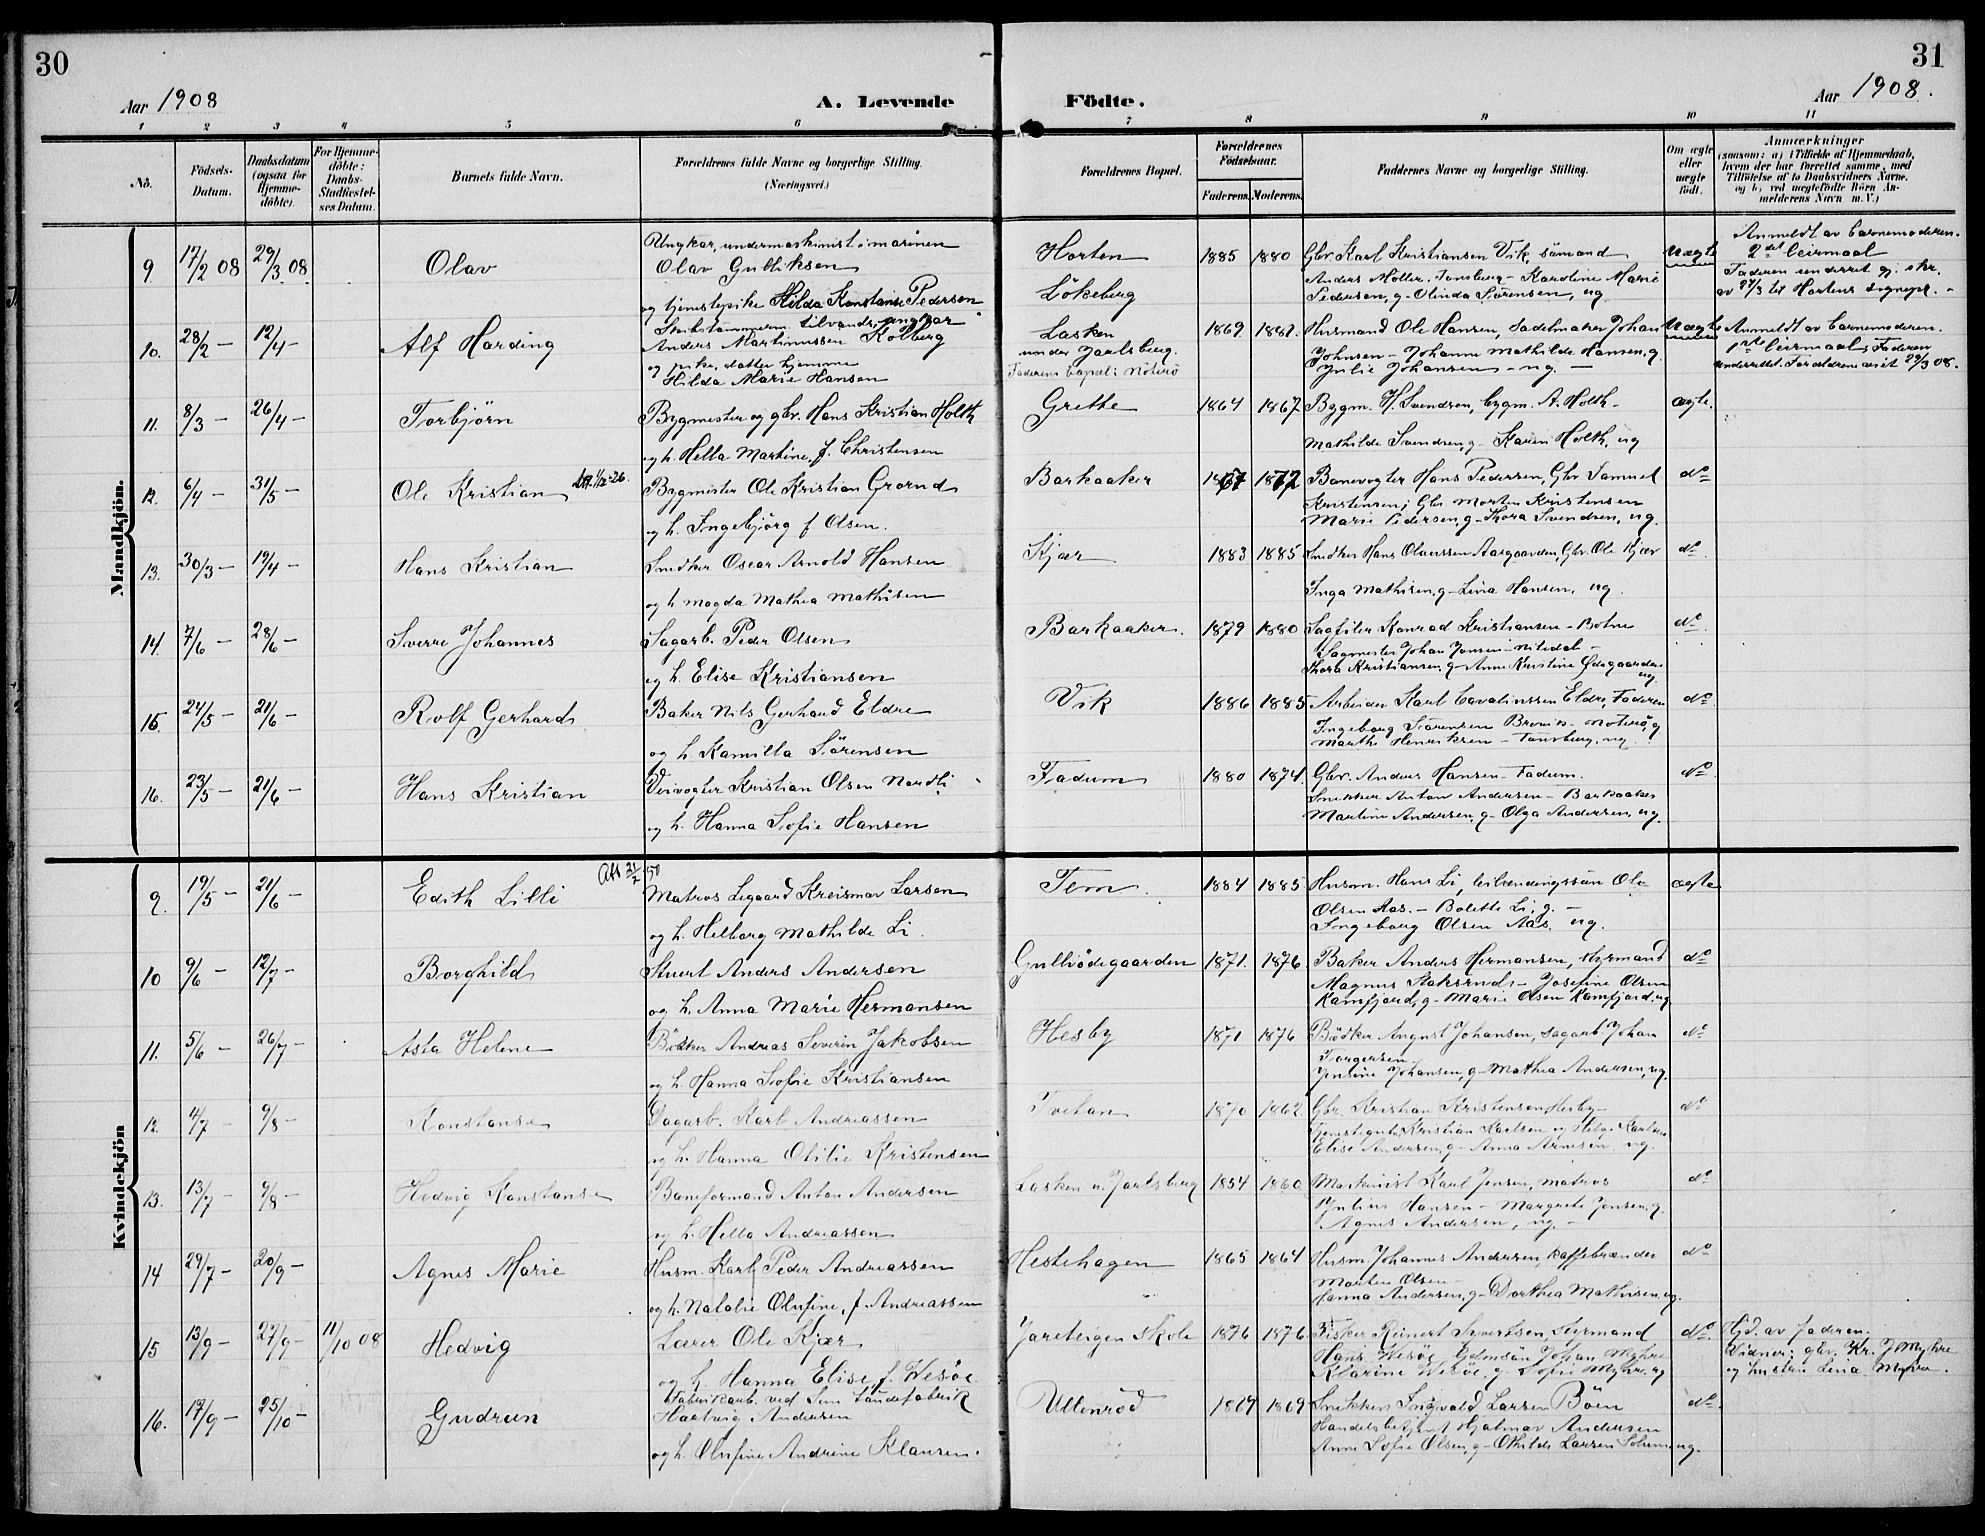 30
Aar 1908
A. Levende
Födte.
31
Aar 1908.
1 2 3 4 5 6 7 8 9 10 11
No.
Födsels-Datum.
Daabsdatum (ogsaa for Hjemme-döbte).
For Hjemme-döbte: Daabs-Stadfæstel-ses Datum.
Barnets fulde Navn.
Forældrenes fulde Navne og borgerlige Stilling. (Næringsvei.)
Forældrenes Bopæl.
Forældrenes Födselsaar.
Faderens. Moderens.
Faddernes Navne og borgerlige Stilling.
Om ægte eller uægte födt.
Anmærkninger
(saasom: a) i Tilfælde af Hjemmedaab, hvem der har forrettet samme, med Tilföielse af to Daabsvidners Navne, og b) ved uægtefödte Börn An-melderens Navn m. V.)
Mandkjön.
9 17/2 08 29/3 08 Olav
Ungkar, undermaskinist i marinen
Olav Gulliksen
og tjenestepike Hilda Konstanse Pedersen
Horten
Lökeberg
1885 1880
Gbr Karl Kristiansen Vik, sömand
Anders Möller, Tønsberg - Karoline Marie
Pedersen, g - Olinda Sørensen, ug
Uægte
Anmeldt av barnemoderen.
2det leiermaal
Faderen underret. gj. skr.
av 27/3 til Hortens sognepr. -
10. 28/2 - 12/4 - Alf Harding
ungkar
Anders Martinussen Kolberg
og pike, datter hjemme
Hilda Marie Hansen
Lasken
under Jarlsberg.
Faderens bopæl: Nöterö
1869 1882.
Husmand Ole Hansen, Sadelmaker Johan
Johnsen - Johanne Mathilde Hansen, g.
Julie Johansen - ug. -
Uægte
Anmeldt av barnemoderen.
1ste leiermaal; Faderen
underrettet. Forældrene viet 29/3 08.
11. 8/3 - 26/4 - Torbjörn
Bygmester og gbr. Hans Kristian Holth
og h. Hella Martine, f. Christensen
Grette
1864 1867
Bygm. H. Svendsen, bygm. A. Holth -
Mathilde Svendsen, g - Karen Holth, ug
ægte.
12. 6/4 - 31/5 - Ole Kristian
Bygmester Ole Kristian Grorud
og h. Ingebjörg f Olsen.
Barkaaker
1867 1872
Banevogter Hans Pedersen, Gbr Samuel
Kristensen; Gbr Morten Kristensen
Marie Pedersen, g - Thora Svendsen, ug.
do
13. 30/3 - 19/4 - Hans Kristian
Snedker Oscar Arnold Hansen
og h Magda Mathea Mathisen
Kjær
1883 1885
Snedker Hans Olaussen Aasgaarden, Gbr. Ole Kjær
Inga Mathisen, g - Lina Hansen, ug.
do
14. 7/6 - 28/6 - Sverre Johannes
Sagarb. Peder Olsen
og h. Elise Kristiansen
Barkaaker.
1879 1880
Sagfiler Konrad Kristiansen - Botne
Sagmester Johan Jensen - Nitedal -
Thora Kristiansen, g - Anne Kristine Ødegaarden
ug.
do
15. 24/5 - 21/6 - Rolf Gerhard
Baker Nils Gerhard Eldre
og h. Kamilla Sörensen
Vik
1886 1885
Arbeider Karl Cavalinssen Eldre, Faderen
Ingeborg Sörensen - Nöterö, g
Marthe Henriksen - Tønsberg, ug.
do
16. 23/5 - 21/6 - Hans Kristian
Veivogter Kristian Olsen Nordli
og h. Hanna Sofie Hansen
Fadum
1880 1874.
Gbr. Anders Hansen - Fadum.
Snekker Anton Andersen - Barkaaker
Martine Andersen, g - Olga Andersen, ug.
do
Kvindekjön
9. 19/5 - 21/6 - Edith Lilli
Matros Segaard Kreismar Larsen
og h. Helborg Mathilde Li.
Tem.
1884 1885
Husm. Hans Li, Ole
Olsen Aas. - Bolette Li, g. -
Ingeborg Olsen Aas, ug.
ægte
10 9/6 - 12/7 - Borghild
Stuert Anders Andersen
og h. Anna Marie Hermansen
Gullrödegaarden
1871. 1876
Baker Anders Hermansen, styrmand
Magnus Stoksrud - Josefine Olsen
Kamfjord, g - Marie Olsen Kamfjord, ug
do
11. 5/6 - 26/7 - Asta Helene
Bödker Andreas Severin Jakobsen
og h. Hanna Sofie Kristiansen
Hesby
1871 1876
Bödker August Johansen, sagarb. Johan
Torgersen -
Jensine Johansen, g - Mathea Andersen, ug.
do
12. 4/7 - 9/8 - Konstanse
Dagarb. Karl Andreassen
og h. Hanna Otilie Kristensen
Tvetan
1870 1862
Gbr. Kristian Kristensen Hesby -
Tjenestegutt Kristian Karlsen og Helge Karlsen
Elise Andersen, g - Anna Arnesen ug.
do
13. 13/7 - 9/8 - Hedvig Konstanse
Baneformand Anton Andersen
og h. Hella Andreassen
Lasken u. Jarlsberg
1854 1860
Maskinist Karl Jensen, matros
Julius Hansen - Margrete Jensen, g.
Agnes Andersen, ug. -
do
14 29/7 - 20/9 - Agnes Marie
Husm. Karl Peder Andreassen
og h. Natalie Olufine, f. Andreassen
Hestehagen
1865 1864
Husm. Johannes Andersen, kaffebrænder
Morten Olsen -
Hanna Andersen, g - Dorthea Mathisen, ug.
do
15 13/9 - 27/9 - 11/10 08 Hedvig
Lærer Ole Kjær
og h. Hanna Elise, f. Wesöe
Jareteigen skole
1876 1876
Fisker Reinert Sivertsen, Styrmand
Hans Wesöe, Gdmsön Johan Myhre
Klarine Wesöe, g - Sofie Myhre, ug
do.
Hjd. av faderen.
Vidner: gbr. Kr. J Myhre
og hustru Lina Myhre.
16. 17/9 - 25/10 - Gudrun
Fabrikarb. ved Sem töndefabrik
Hartvig Andersen
og h. Olufine Andrine Klausen.
Ullenröd
1869 1869
Snekker Ingvald Larsen Böen
Handelsbetjent Hjalmar Andersen
Anne Sofie Olsen, g - Othilde Larsen, ug.
do